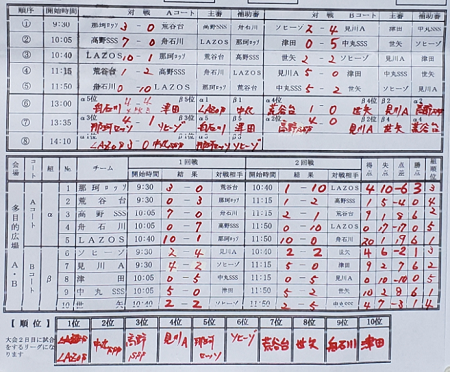 順序 開始時間 対戦 Aコート 主審 補助審 対戦 Bコート 主審 補助審
① 9:30 那珂ロッソ 3 - 0 荒谷台 高野SSS 舟石川 ソヒーゾ 2 - 4 見川A 津田 中丸SSS
② 10:05 高野SSS 7 - 0 舟石川 LAZOS 那珂ロッソ 津田 0 - 5 中丸SSS 世矢 ソヒーゾ
③ 10:40 LAZOS 10 - 1 那珂ロッソ 世矢 2 - 2 ソヒーゾ 見川A
④ 11:15 荒谷台 1 - 2 高野SSS LAZOS 見川A 5 - 0 津田 中丸SSS
⑤ 11:50 舟石川 0 - 10 LAZOS 荒谷台 中丸SSS 5 - 2 世矢 津田 見川A
⑥ 13:00 α5位 舟石川 津田 LAZOS 荒谷台 1 - 0 世矢 見川A
⑦ 13:35 那珂ロッソ 4 - 1 ソヒーゾ 舟石川 津田 高野SSS 見川A 世矢 荒谷台
⑧ 14:10 LAZOS 3 - 0 中丸SSS 那珂ロッソ ソヒーゾ
会場 コート 組 № チーム 1回戦 2回戦 得点 失点 点差 勝点 組順位
開始時間 結果 対戦相手 開始時間 結果 対戦相手
多目的広場 A・B
Aコート α
1 那珂ロッソ 9:30 3 - 0 荒谷台 10:40 1 - 10 LAZOS 4 10 -6 3 3
2 荒谷台 9:30 0 - 3 那珂ロッソ 11:15 1 - 2 高野SSS 1 5 -4 0 4
3 高野SSS 10:05 7 - 0 舟石川 11:15 2 - 1 荒谷台 9 1 8 6 2
4 舟石川 10:05 0 - 7 高野SSS 11:50 0 - 10 LAZOS 0 17 -17 0 5
5 LAZOS 10:40 10 - 1 那珂ロッソ 11:50 10 - 0 舟石川 20 1 19 6 1
Bコート β
6 ソヒーゾ 9:30 2 - 4 見川A 10:40 2 - 2 世矢 4 6 -2 1 3
7 見川A 9:30 4 - 2 ソヒーゾ 11:15 5 - 0 津田 9 2 7 6 2
8 津田 10:05 0 - 5 中丸SSS 11:15 0 - 5 見川A 0 10 -10 0 5
9 中丸SSS 10:05 5 - 0 津田 11:50 5 - 2 世矢 10 2 8 6 1
10 世矢 10:40 2 - 2 ソヒーゾ 11:50 2 - 5 中丸SSS 4 7 -3 1 4
【順位】 1位 2位 3位 4位 5位 6位 7位 8位 9位 10位
大会2日目に試合をするリーグになります
LAZOS 中丸SSS 高野SSS 見川A 那珂ロッソ ソヒーゾ 荒谷台 世矢 舟石川 津田